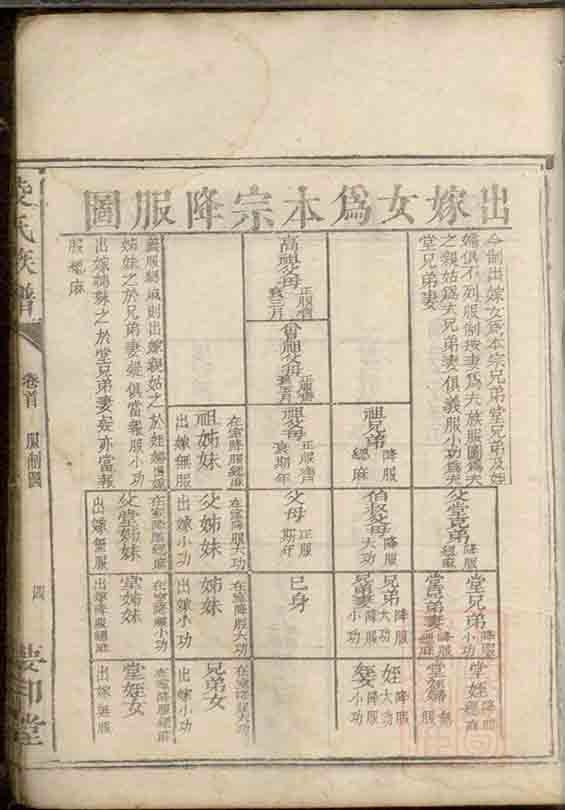 出嫁女爲本宗降服圖
今制出嫁女爲本宗兄弟堂兄弟及姪
婦俱不列服制按妻爲夫族服圖爲夫
之親姑爲夫兄弟妻俱義服小功爲夫
堂兄弟妻
義服緦麻則出嫁親姑之於姪婦
姊妹之於兄弟妻 俱當報服小功
出嫁 之於堂兄弟妻 亦當報
服緦麻
高祖父母 正服齊衰三月
曾祖父母 正服齊衰五月
祖兄弟 降服緦麻
祖父母 正服齊衰期年
祖姊妹 在室降服緦麻 出嫁無服
父堂兄弟 降服緦麻
伯叔父母 降服大功
父母 正服期年
父姊妹 在室降服大功 出嫁小功
父堂姊妹 在室降服緦麻 出嫁無服
堂兄弟 降服小功
堂兄弟妻 降服緦麻
兄弟 降服大功
兄弟妻 降服小功
已身
姊妹 在室降服大功 出嫁小功
堂姊妹 在室降服小功 出嫁降服緦麻
堂姪 降服緦麻
堂姪婦 服
姪 降服大功
姪妻 降服小功
兄弟女 在室降服大功 出嫁小功
堂姪女 在室降服緦麻 出嫁無服
氏族譜
卷首
服制圖
四
堂